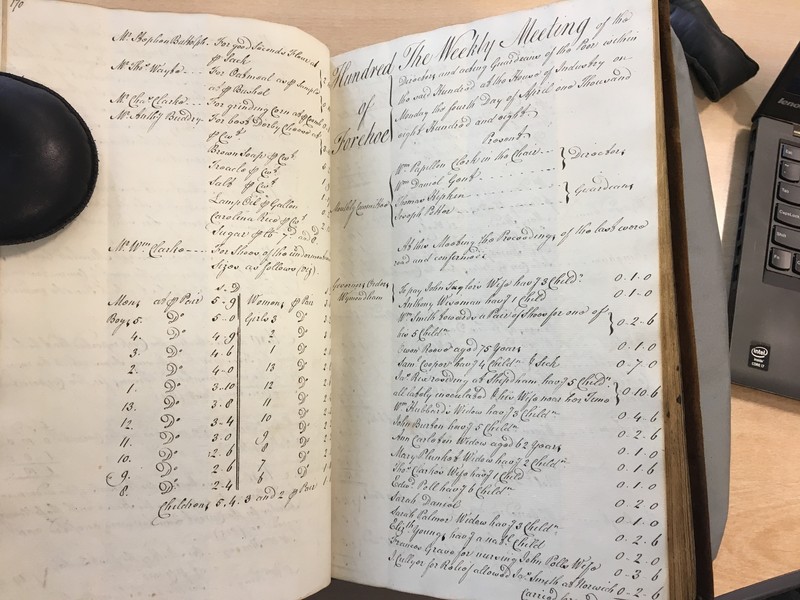 170
Mr. Stephen Buttolph. For good Seconds Flour at
⅌ Sack
Mr. Thos. Wayte - For Oatmeal as ⅌ Sample
at ⅌ Bushel
Mr. Chas. Clarke - For grinding Corn at ⅌ Comb
Mr. For best Derby Cheese at
⅌ Cwt.
Brown Soap ⅌ Cwt.
Treacle ⅌ Cwt.
Salt ⅌ Cwt.
Lamp Oil ⅌ Gallon
Carolina Rice ⅌ Cwt.
Sugar ⅌ lb 7d. and
Mr. Wm. Clarke - - - For Shoes of the undermention
Sizes, as follows (viz).
s. d
Mens at ⅌ Pair 5 - 9 Womens ⅌ Pair
Boys 5. Do 5 - 0 Girls 3 Do
4. Do 4 - 9 2 Do
3. Do 4 - 6 1 Do
2. Do 4 - 0 13 Do
1. Do 3 - 10 12 Do
13. Do 3 - 8 11 Do
12. Do 3 - 4 10 Do
11. Do 3 - 0 9 Do
10. Do 2 - 6 8 Do
9. Do 2 - 6 7 Do
8. Do 2 - 4 6 Do
Childrens 5. 4. 3 and 2 ⅌ Pair
Hundred
of
Forehoe
The Weekly Meeting of the
Directors and acting Guardians of the Poor within
the said Hundred at the House of Industry on
Monday the fourth Day of April one Thousand
eight Hundred and eight.
Present
Wm. Papillon Clerk in the Chair - - -
Wm. Daniel Gent. - - -
Directors
Monthly Committee
Thomas Stephen - - -
Joseph - - -
Guardians
At this Meeting the Proceedings of the last were
read and confirmed.
Governors Orders
Wymondham
To pay John Taylors Wife havg. 3 Childn. 0 - 1 - 0
Anthony Wiseman havg. 1 Child 0 - 1 - 0
Wm. Smith towards a Pair of Shoes for one of
his 5 Childn. 0 - 2 - 6
Owen Reeve aged 75 Years 0 - 1 - 0
Saml. Cooper havg. 4 Childn. & Sick 0 - 7 - 0
Jas. Rix residing at Shipdham havg. 5 Childn.
all lately inoculated & his Wife near her Time 0 - 10 - 6
Wm. Hubbards Widow havg. 3 Childn. 0 - 4 - 6
John Burton havg. 5 Childn. 0 - 2 - 6
Ann Carleton Widow aged 62 Years 0 - 1 - 0
Mary Plunket Widow havg. 2 Childn. 0 - 1 - 6
Thos. Clarkes Wife havg. 1 Child 0 - 1 - 0
Edwd. Poll havg. 6 Childn.
Sarah Daniel 0 - 2 - 0
Sarah Palmer Widow havg. 3 Childn. 0 - 1 - 0
Elizth. Youngs havg. a natl. Child 0 - 2 - 6
Frances Grave for nursing John Polls Wife 0 - 2 - 0
0 - 3 - 6
J. Cullyer for Relief allowed Jas. Smyth at Norwich 0 - 2 - 6
Carried
lenovo
intel
inside
CORE i7
Tab
CapsLock
Shift
Fn
Ctrl